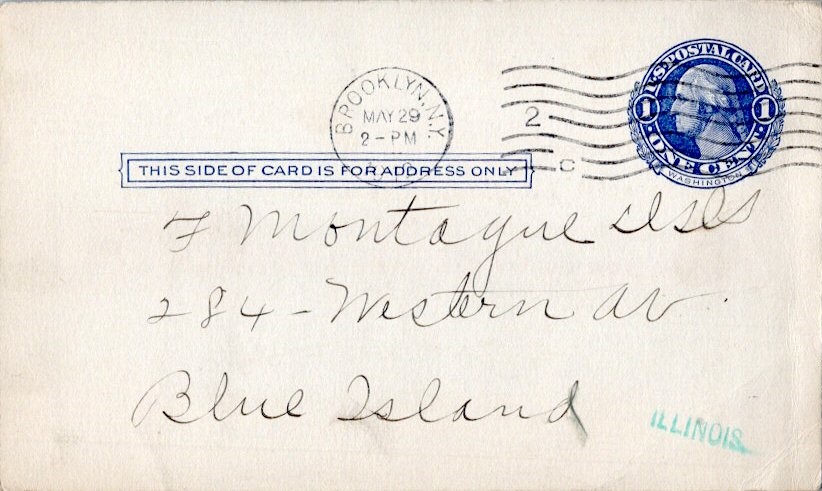 BROOKLYN, N.Y.
MAY 29
2-PM
2
C
U.S. POSTAL CARD
1 1
ONE CENT
WASHINGTON
THIS SIDE OF CARD IS FOR ADDRESS ONLY
F Montague
284 - Western Av.
Blue Island
ILLINOIS